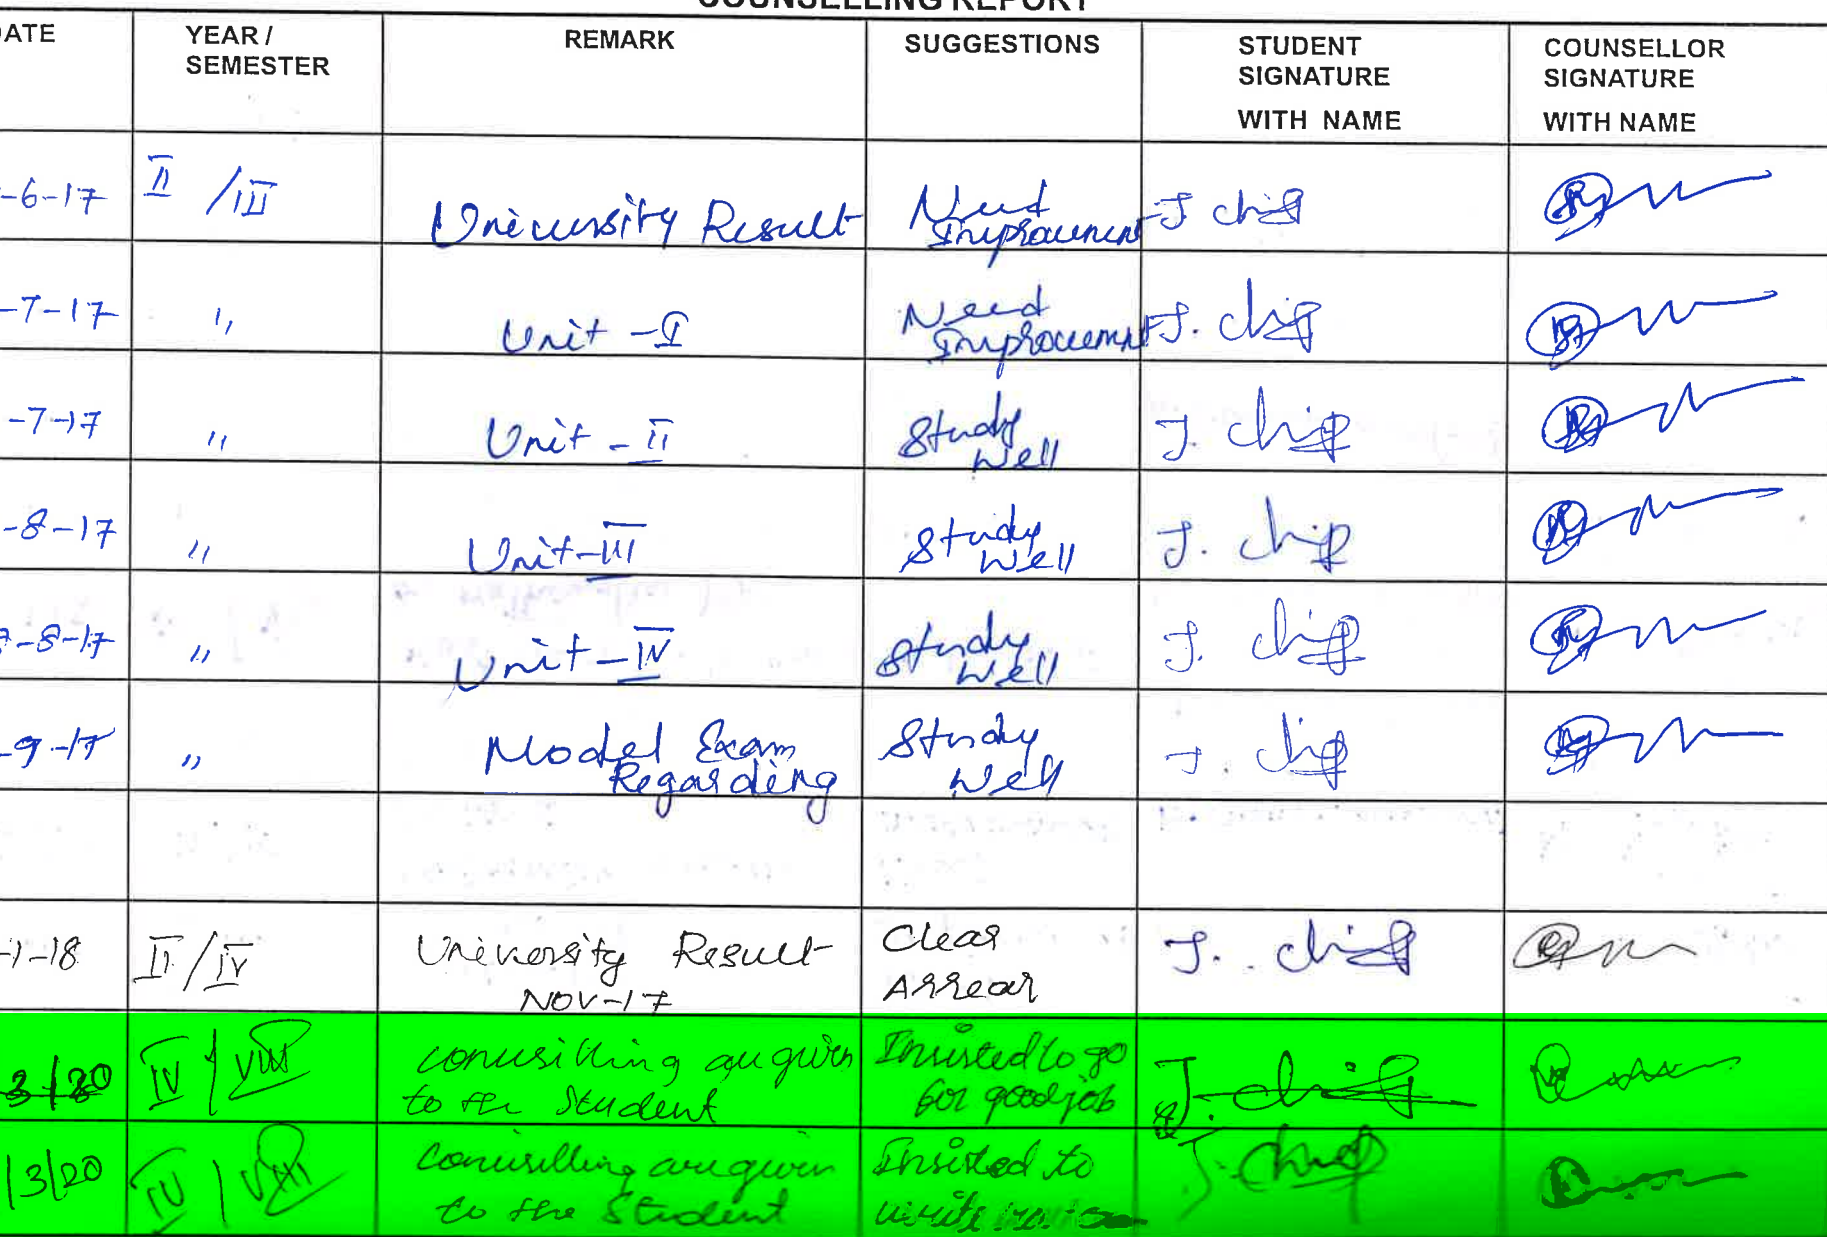 COUNSELLING REPORT
DATE YEAR / SEMESTER REMARK SUGGESTIONS STUDENT SIGNATURE WITH NAME COUNSELLOR SIGNATURE WITH NAME
-6-17 II /III University Result Need Improvement J.
-7-17 " Unit - I Need Improvement J.
-7-17 " Unit - II Study Well J.
-8-17 " Unit - III Study Well J.
-8-17 " Unit - IV Study Well J.
-9-17 " Model Exam Regarding Study Well J.
-1-18 II/IV University Result NOV-17 Clear Arrear J.
3/20 IV/VIII to the Student Insisted to go for good job J.
/3/20 IV/VIII to the Student Insisted to write J.